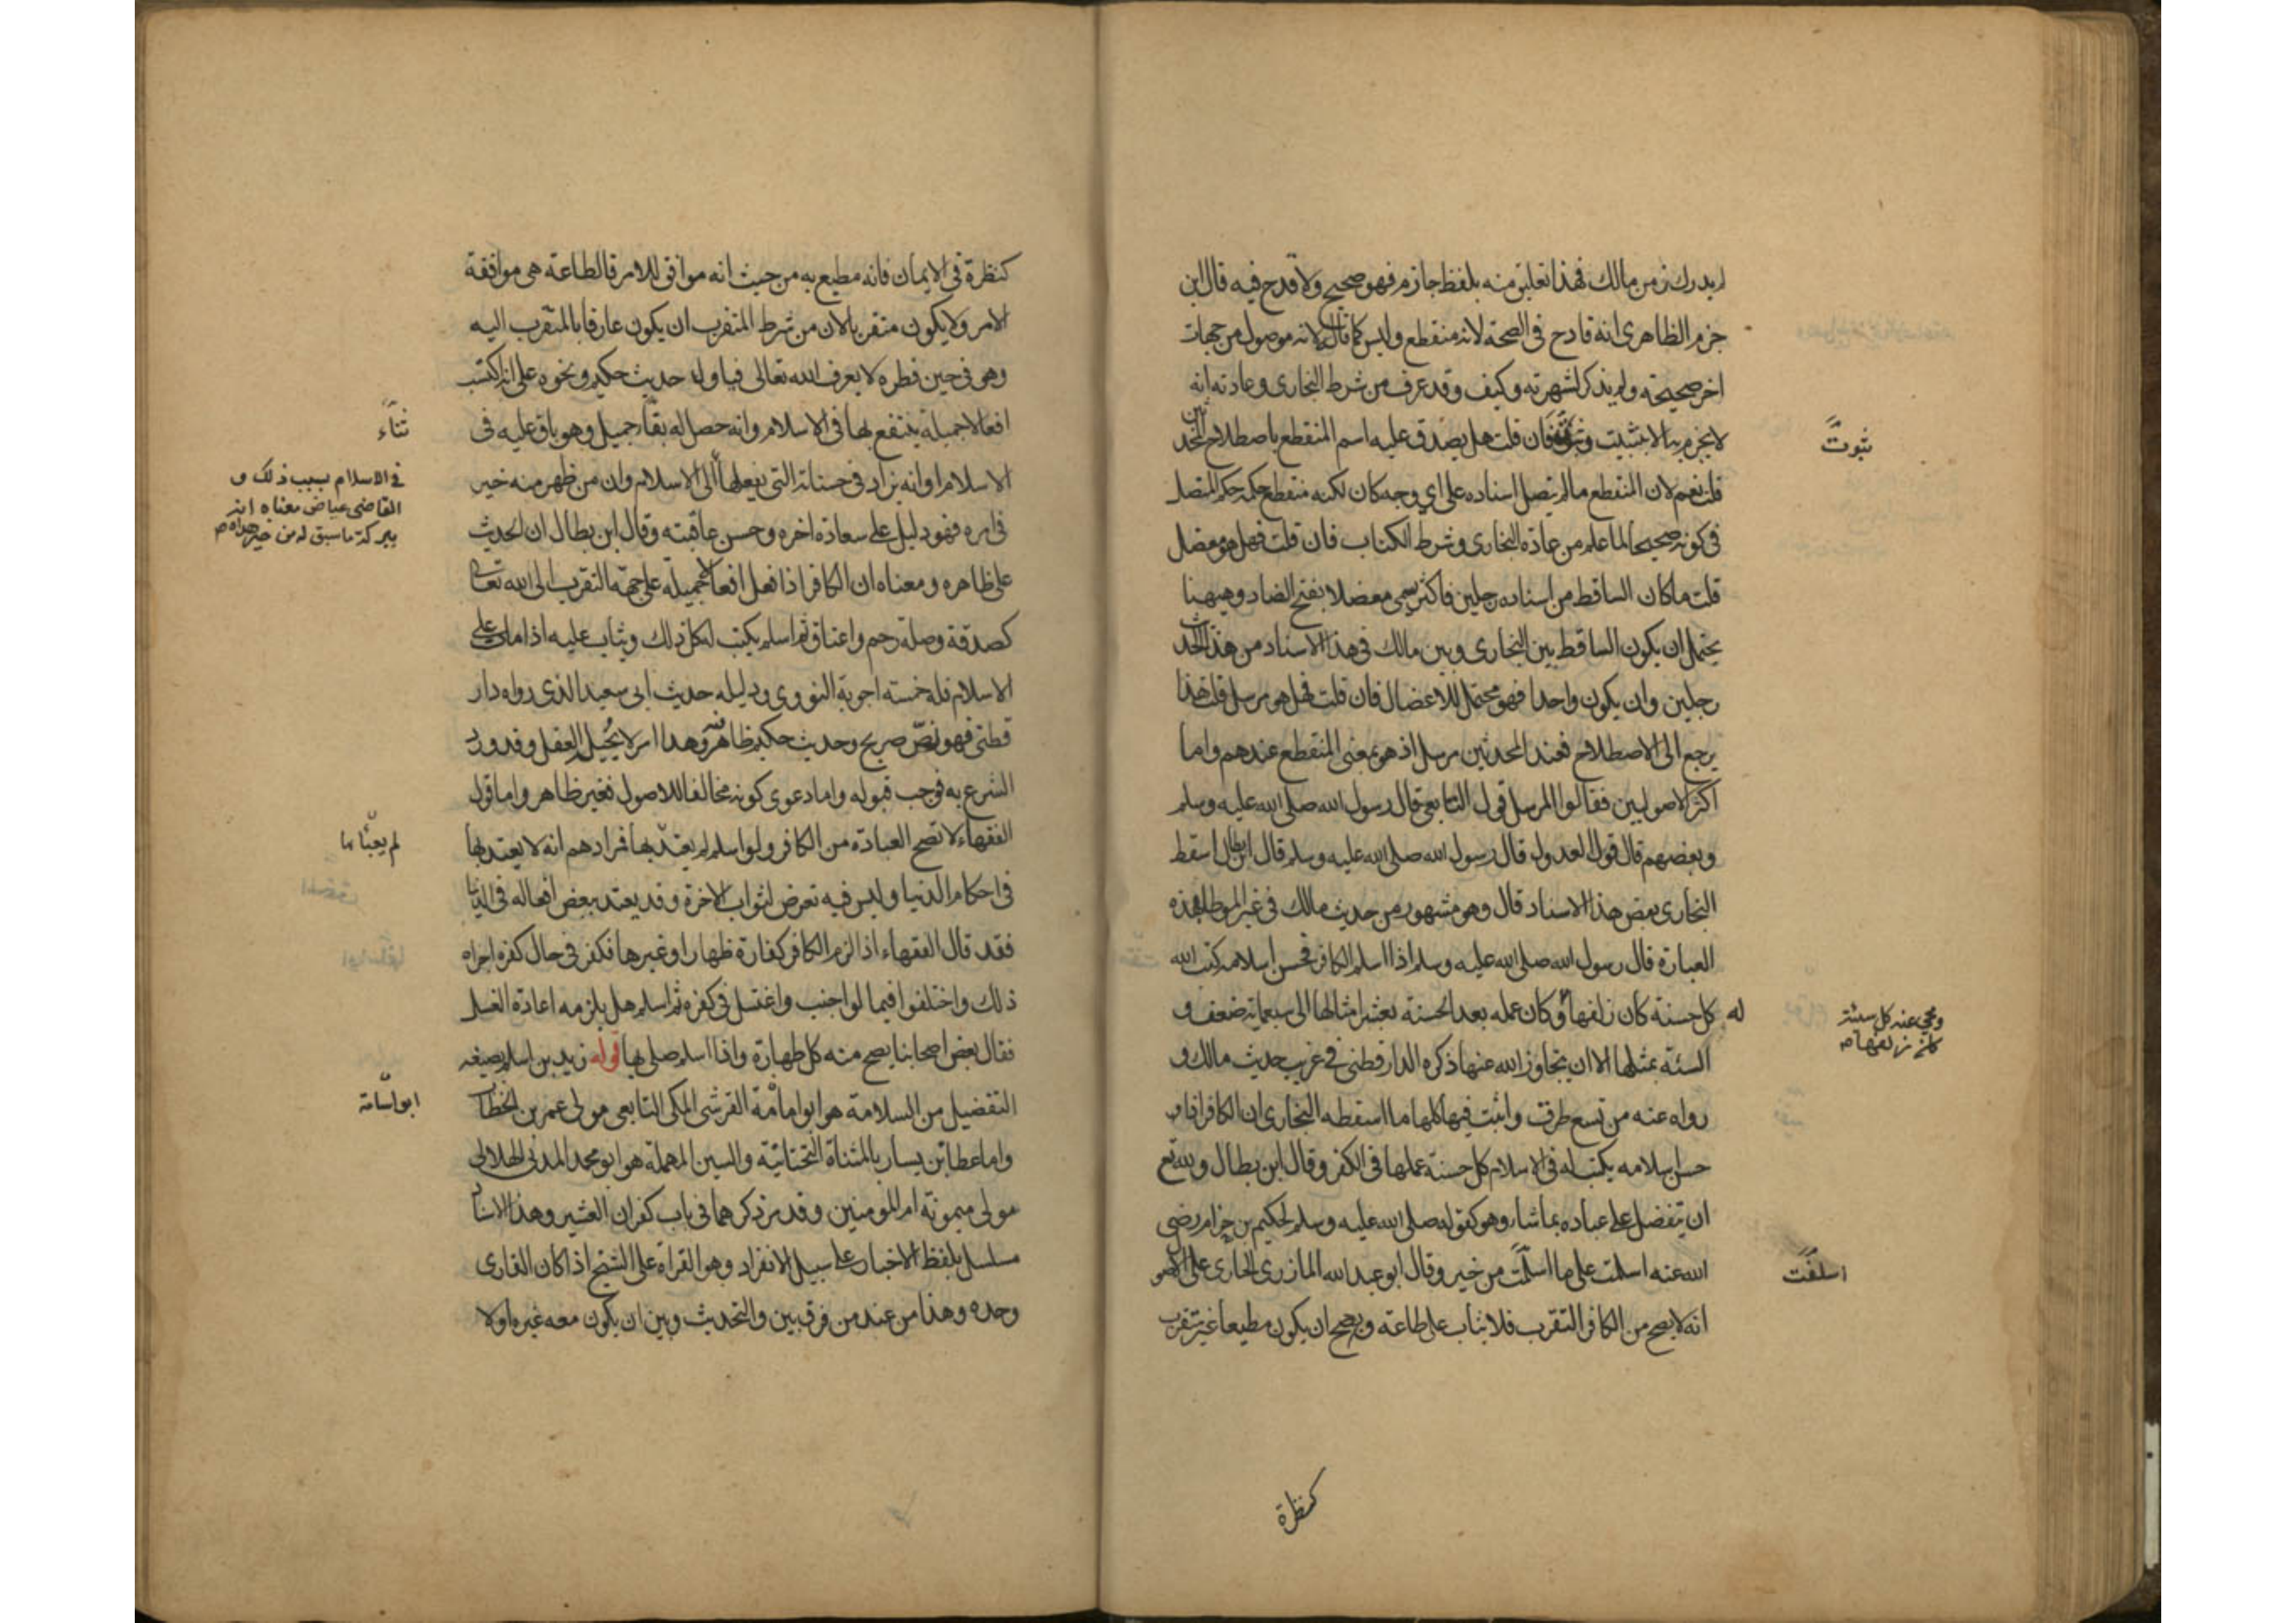 لم يدرك زمن مالك فهذا تعليق منه بلفظ جازم فهو صحيح ولا قدح فيه قال ابن
حزم الظاهري انه قادح في الصحة لانه منقطع وليس كما قال لانه موصول من جهات
اخر صحيحة ولم يذكر لشهرته وكيف وقد عرف من شرط البخاري وعادته انه
لا يجزم الا بتثبيت وثبوت فان قلت هل يصدق عليه اسم المنقطع باصطلاح المحدثين
ثبوت
قلت نعم لان المنقطع ما لم يتصل اسناده على اي وجه كان لكنه منقطع حكمه حكم المتصل
في كونه صحيحا لما علم من عادة البخاري وشرط الكتاب فان قلت فهل هو معضل
قلت ما كان الساقط من اسناده رجلين فاكثر يسمى معضلا بفتح الضاد وههنا
يحتمل ان يكون الساقط بين البخاري وبين مالك في هذا الاسناد من هذا الحديث
رجلين وان يكون واحدا فهو محتمل للاعضال فان قلت فهل هو مرسل قلت هذا
يرجع الى الاصطلاح فعند المحدثين مرسل اذ هو بمعنى المنقطع عندهم واما
اكثر الاصوليين فقالوا المرسل قول التابعي قال رسول الله صلى الله عليه وسلم
وبعضهم قال قول العدول قال رسول الله صلى الله عليه وسلم قال ابن بطال اسقط
البخاري بعض هذا الاسناد قال وهو مشهور من حديث مالك في غير الموطا بهذه
العبارة قال رسول الله صلى الله عليه وسلم اذا اسلم الكافر فحسن اسلامه كتب الله
له كل حسنة كان زلفها وكان عمله بعد الحسنة بعشر امثالها الى سبعمائة ضعف و
ومحي عنه كل سيئة
كان زلفها صح
السيئة بمثلها الا ان يتجاوز الله عنها ذكره الدارقطني في غريب حديث مالك و
رواه عنه من تسع طرق واثبت فيها كلها ما اسقطه البخاري ان الكافر اذا
حسن اسلامه يكتب له في الاسلام كل حسنة عملها في الكفر وقال ابن بطال ولله تع
ان يتفضل على عباده بما شاء وهو كقوله صلى الله عليه وسلم لحكيم بن حزام رضي
الله عنه اسلمت على ما اسلفت من خير وقال ابو عبد الله المازري الجاري على الاصول
اسلفت
انه لا يصح من الكافر التقرب فلا يثاب على طاعة ويصح ان يكون مطيعا غير متقرب
كنظرة
كنظرة في الايمان فانه مطيع به من حيث انه موافق للامر فالطاعة هي موافقة
الامر ولا يكون متقربا لان من شرط المتقرب ان يكون عارفا بالمتقرب اليه
وهو في حين نظره لا يعرف الله تعالى فيأول حديث حكيم ونحوه على انه اكتسب
افعالا جميلة ينتفع بها في الاسلام وانه حصل له بقاء جميل وهو باق عليه في
ثناء
الاسلام او انه يزاد في حسناته التي يفعلها الى الاسلام وان من ظهر منه خير
في الاسلام بسبب ذلك و
القاضي عياض معناه انه
ببركة ما سبق له من خير هداه صح
في امره فهو دليل على سعادة اخره وحسن عاقبته وقال ابن بطال ان الحديث
على ظاهره ومعناه ان الكافر اذا فعل افعالا جميلة على جهة التقرب الى الله تعالى
كصدقة وصلة رحم واعتاق ثم اسلم يكتب له كل ذلك ويثاب عليه اذا مات على
الاسلام فله خمسة اجوبة النووي ودليله حديث ابي سعيد الذي رواه دار
قطني فهو نص صريح وحديث حكيم ظاهر فيه وهذا امر لا يحيل العقل وقد ورد
الشرع به فوجب قبوله واما دعوى كونه مخالفا للاصول فغير ظاهر واما قول
الفقهاء لا تصح العبادة من الكافر ولو اسلم لم يعتد بها فمرادهم انه لا يعتد بها
في احكام الدنيا وليس فيه تعرض لثواب الاخرة وقد يعتد ببعض افعاله في الدنيا
فقد قال الفقهاء اذا لزم الكافر كفارة ظهار او غيرها فكفر في حال كفره اجزاه
ذلك واختلفوا فيما لو اجنب واغتسل في كفره ثم اسلم هل يلزمه اعادة الغسل
فقال بعض اصحابنا يصح منه كل طهارة واذا اسلم صلى بها قوله زيد بن اسلم بصيغه
التفضيل من السلامة هو ابو امامة القرشي المكي التابعي مولى عمر بن الخطاب
ابو اسامة
واما عطا بن يسار بالمثناة التحتانية والسين المهملة هو ابو محمد المدني الهلالي
مولى ميمونة ام المومنين وقد مر ذكرهما في باب كفران العشير وهذا الاسناد
مسلسل بلفظ الاخبار على سبيل الانفراد وهو القراة على الشيخ اذا كان القاري
وحده وهذا من عند من فرق بين والتحديث وبين ان يكون معه غيره اولا